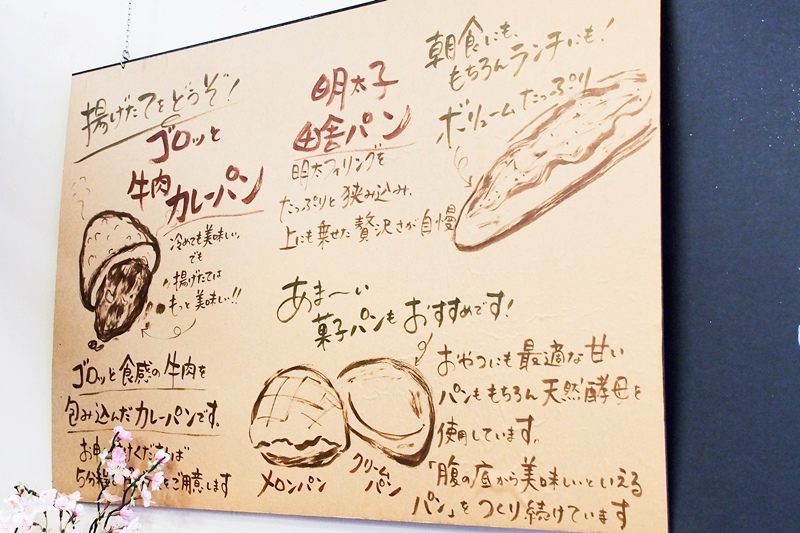 揚げたてをどうぞ!
ゴロッと
牛肉カレーパン
冷めても美味しい。
でも
揚げたては
もっと美味しい!!
ゴロッと食感の牛肉を
包み込んだカレーパンです。
お申し付けくだされば
5分程で
をご用意します
明太子
田舎パン
明太フィリングを
たっぷりと挟み込み、
上にも乗せた贅沢さが自慢
朝食にも、
もちろんランチにも!
ボリュームたっぷり
あま〜い
菓子パンもおすすめです!
メロンパン
クリーム
パン
おやつにも最適な甘い
パンももちろん天然酵母を
使用しています。
「腹の底から美味しいといえる
パン」をつくり続けています